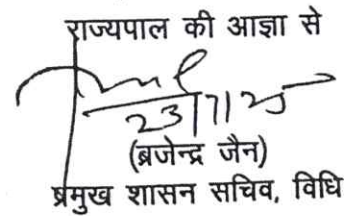 राज्यपाल की आज्ञा से
23/7/25
(ब्रजेन्द्र जैन)
प्रमुख शासन सचिव, विधि